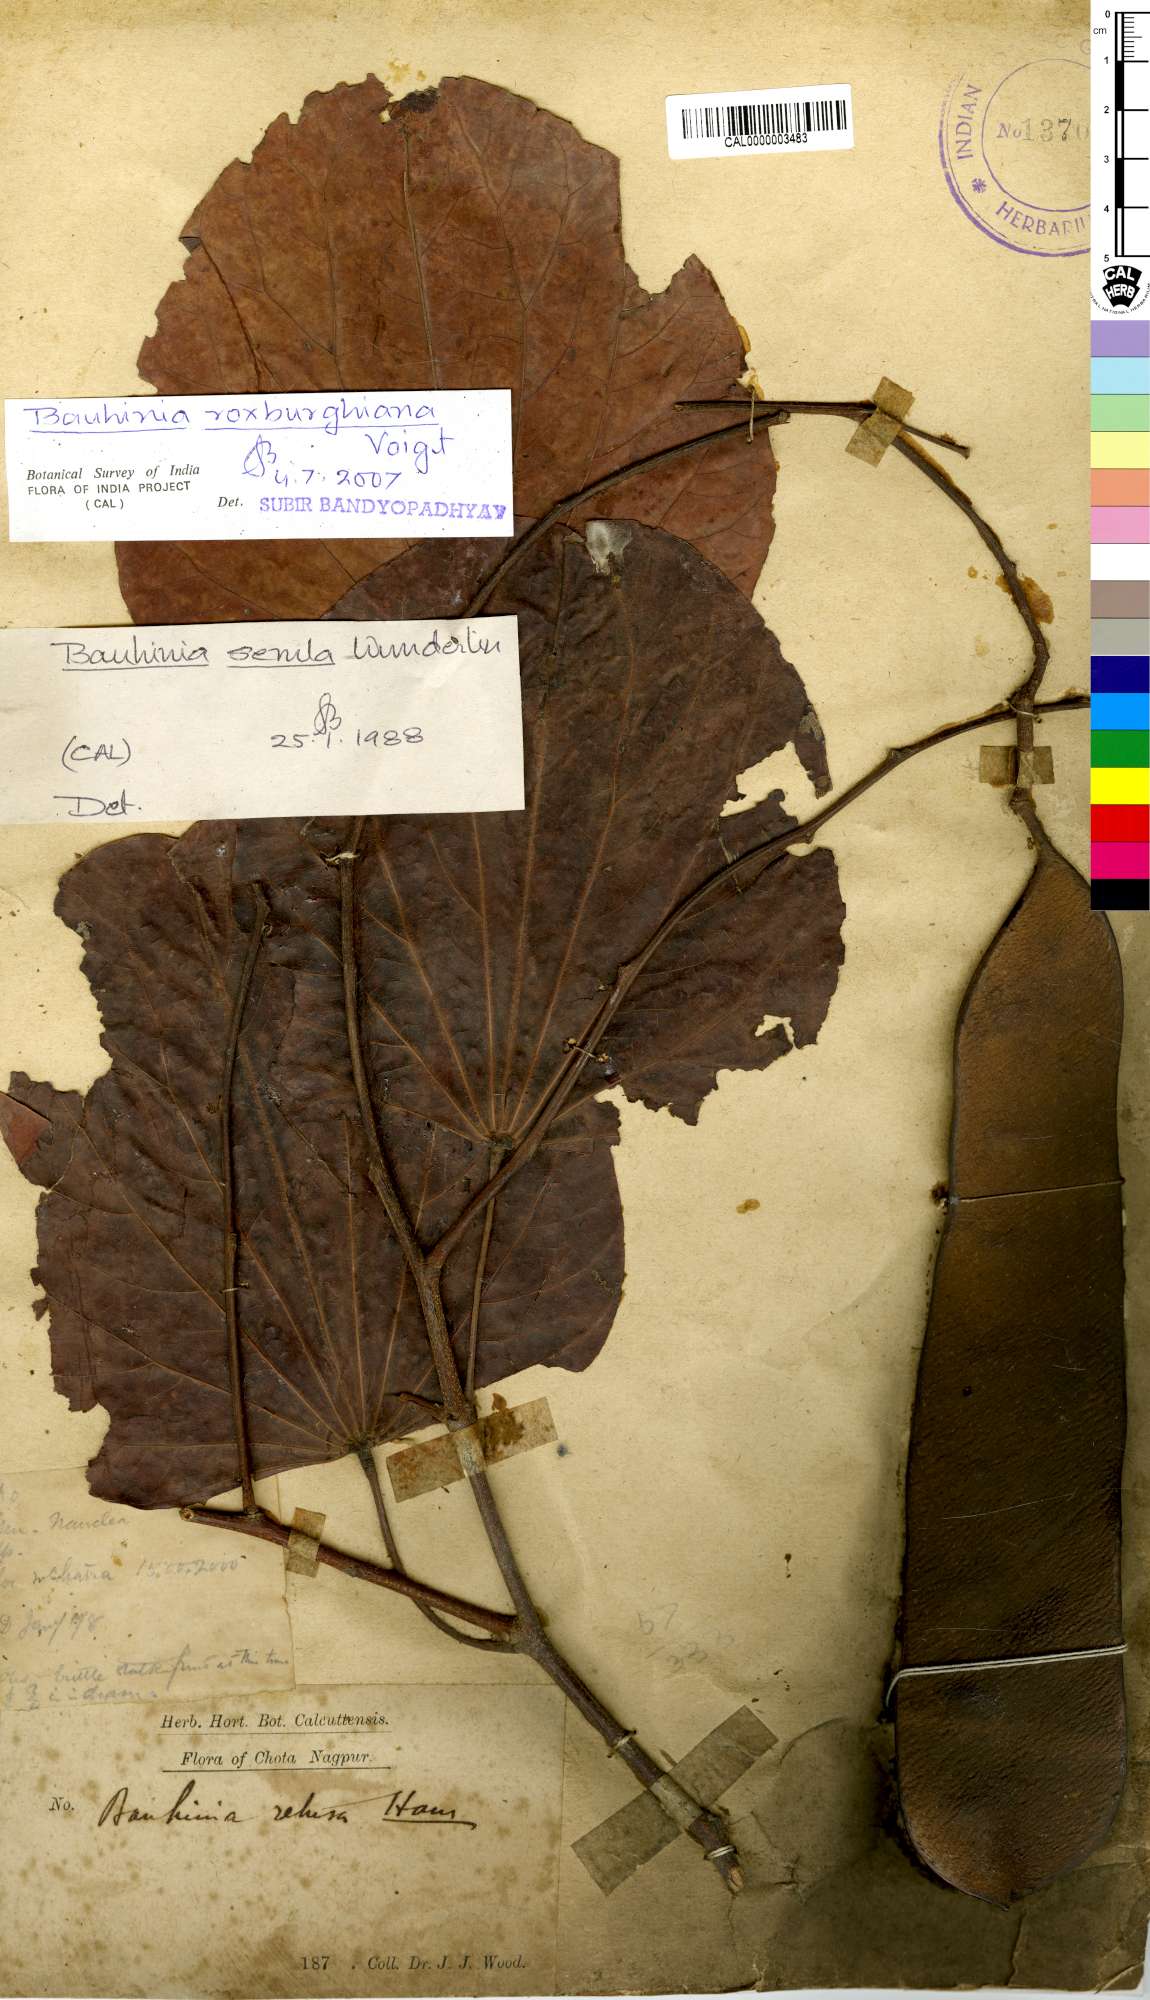 CAL0000003483
INDIAN
No 1370
HERBARIU
0
cm
1
2
3
4
5
CAL
HERB
Bauhinia roxburghiana
Voigt
Botanical Survey of India
FLORA OF INDIA PROJECT
(CAL)
4.7.2007
Det. SUBIR BANDYOPADHYAY
Bauhinia semla Wunderlin
25.1.1988
(CAL)
Det.
Nauclea
15.00.2000
brittle stalk
Herb. Hort. Bot. Calcuttensis.
Flora of Chota Nagpur.
No. Bauhinia retusa Ham
187 . Coll. Dr. J. J. Wood.